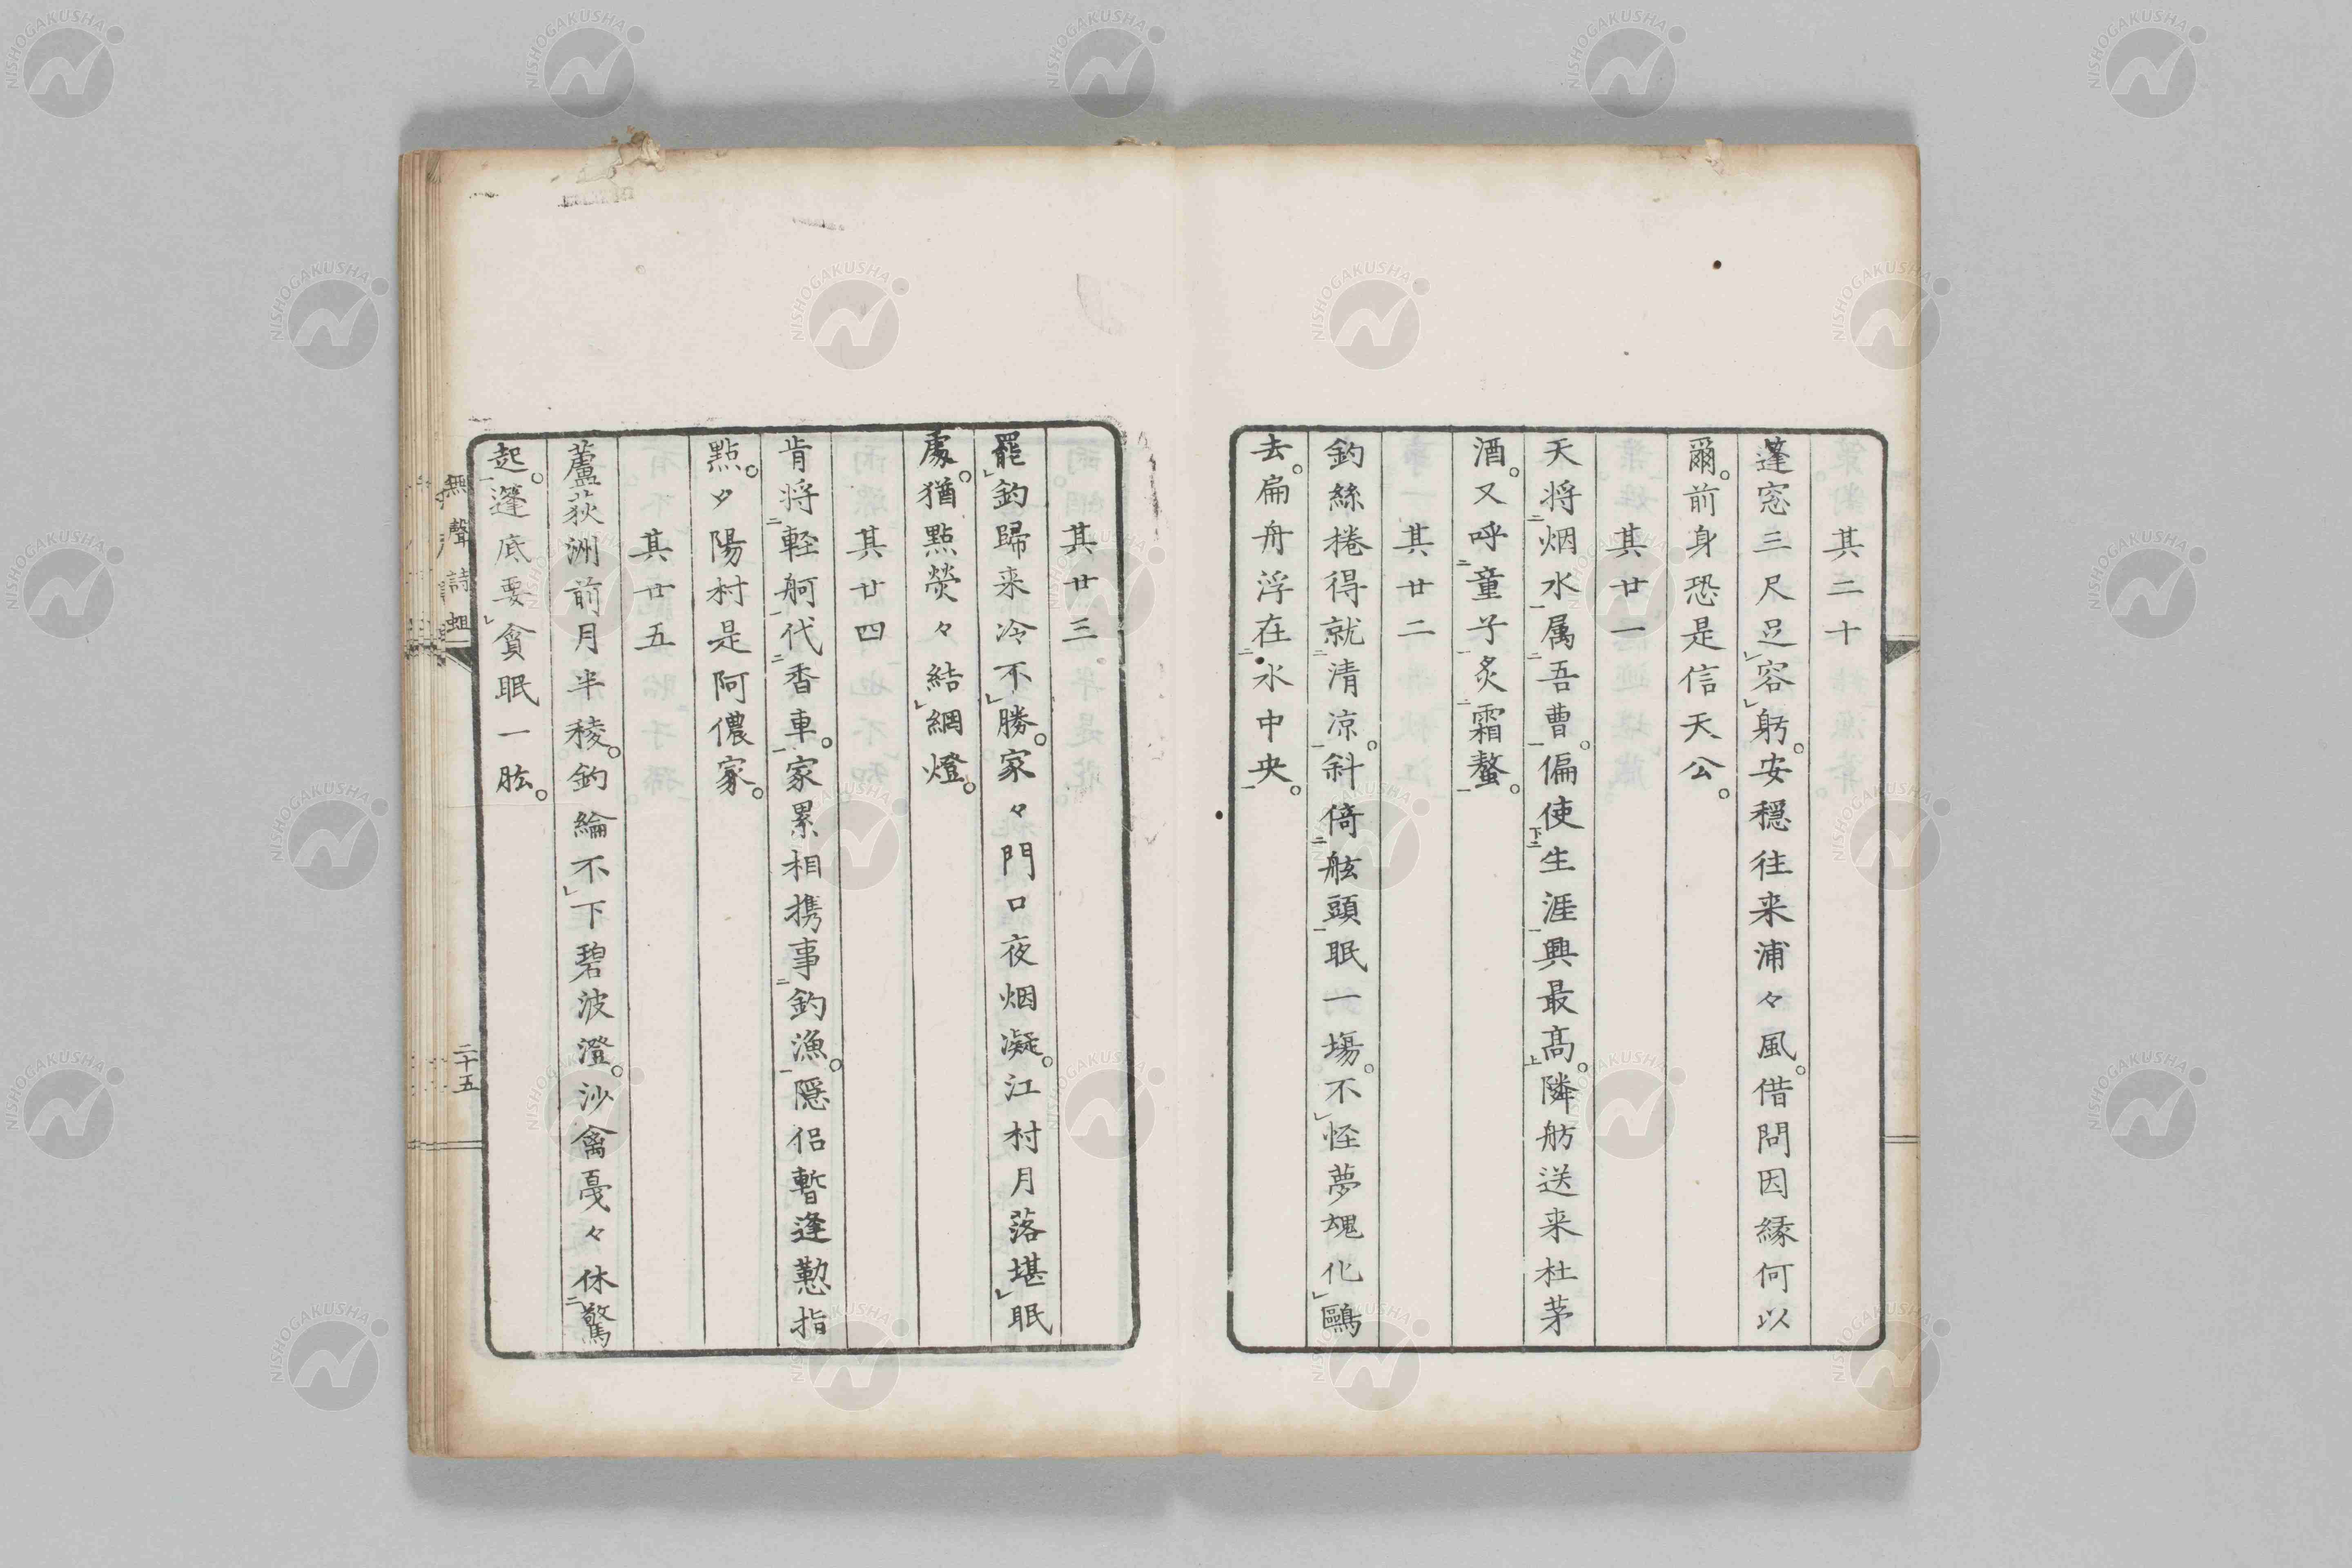 其二十
蓬窓三尺足容躬。安穏往来浦々風。借問因縁何以
爾。前身恐是信天公。
其廿一
天将烟水属吾曹。偏使生涯興最高。隣舫送来杜茅
酒。又呼童子炙霜螯。
其廿二
釣絲捲得就清凉。斜倚舷頭眠一塲。不怪夢魂化鷗
去。扁舟浮在水中央。
其廿三
罷釣歸来冷不勝。家々門口夜烟凝。江村月落堪眠
處。猶點熒々結網燈。
其廿四
肯将輕舸代香車。家累相携事釣漁。隠侶暫逢懃指
點。夕陽村是阿儂家。
其廿五
蘆荻洲前月半稜。釣綸不下碧波澄。沙禽戞々休驚
起。篷底要貪眠一肱。
無聲詩蛆
二十五
NISHOGAKUSHA